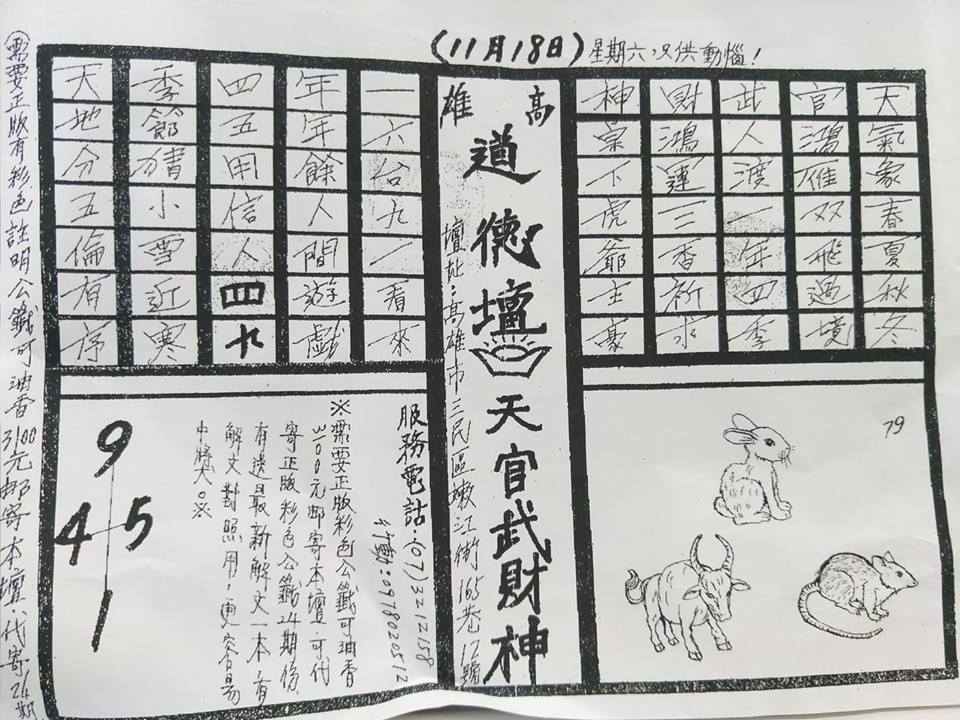 (11月18日) 星期六.只供動惱!
天氣象春夏秋冬
官鴻雁双飛過境
武人渡一年四季
財鴻運三香祈求
神下虎爺主豪
79
高雄
道德壇 天官武財神
壇址:高雄市三民區嫩江街165巷12號
一六台九一看來
年年餘人間遊戲
四五用信人四九
季節小雪近寒
天地分五倫有序
服務電話.(07)3212158
行動:0978020512
※需要正版彩色公籤可油香
3100元郵寄本壇.可代
寄正版彩色公籤24期份.
有送最新解文一本.有
解文對照用.更容易
中獎大。※
9
4 5
1
(需要正版有彩色註明公籤可油香3100元郵寄本壇.代寄24期.